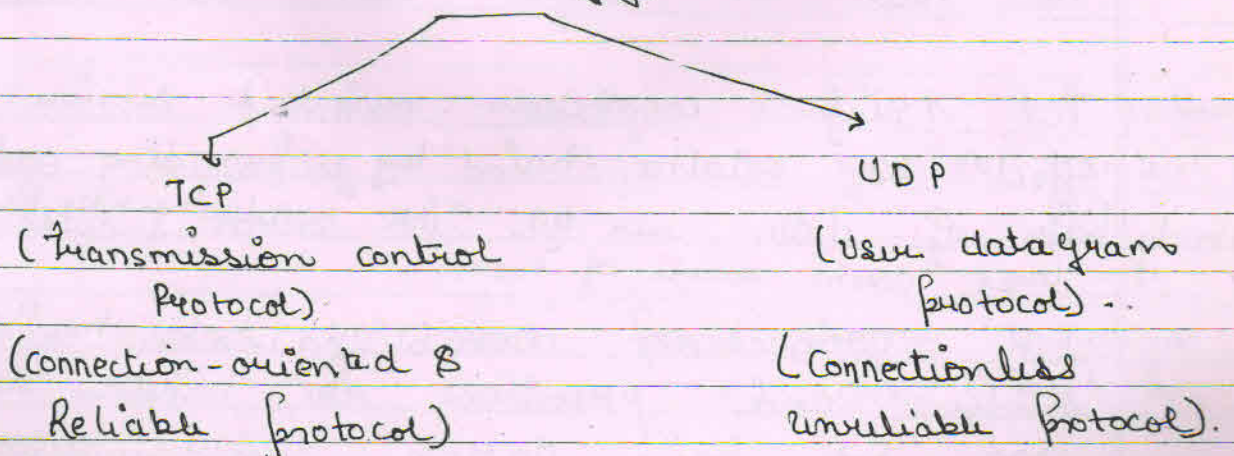 TCP
(Transmission control
Protocol)
(connection-oriented &
Reliable protocol)
UDP
(User datagram
protocol)..
(Connectionless
unreliable protocol).